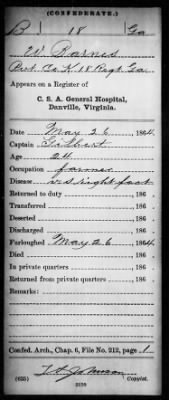 (CONFEDERATE.)
B 18 Ga
W Barnes
Pvt. Co. K, 18 Regt. Ga.
Appears on a Register of
C. S. A. General Hospital,
Danville, Virginia.
Date May 26, 1864.
Captain Gilbert
Age 24
Occupation farmer
Disease v s right foot
Returned to duty , 186 .
Transferred , 186 .
Deserted , 186 .
Discharged , 186 .
Furloughed May 26, 1864.
Died , 186 .
In private quarters , 186 .
Returned from private quarters , 186 .
Remarks:
Confed. Arch., Chap. 6, File No. 212, page 1
(635) Copyist.